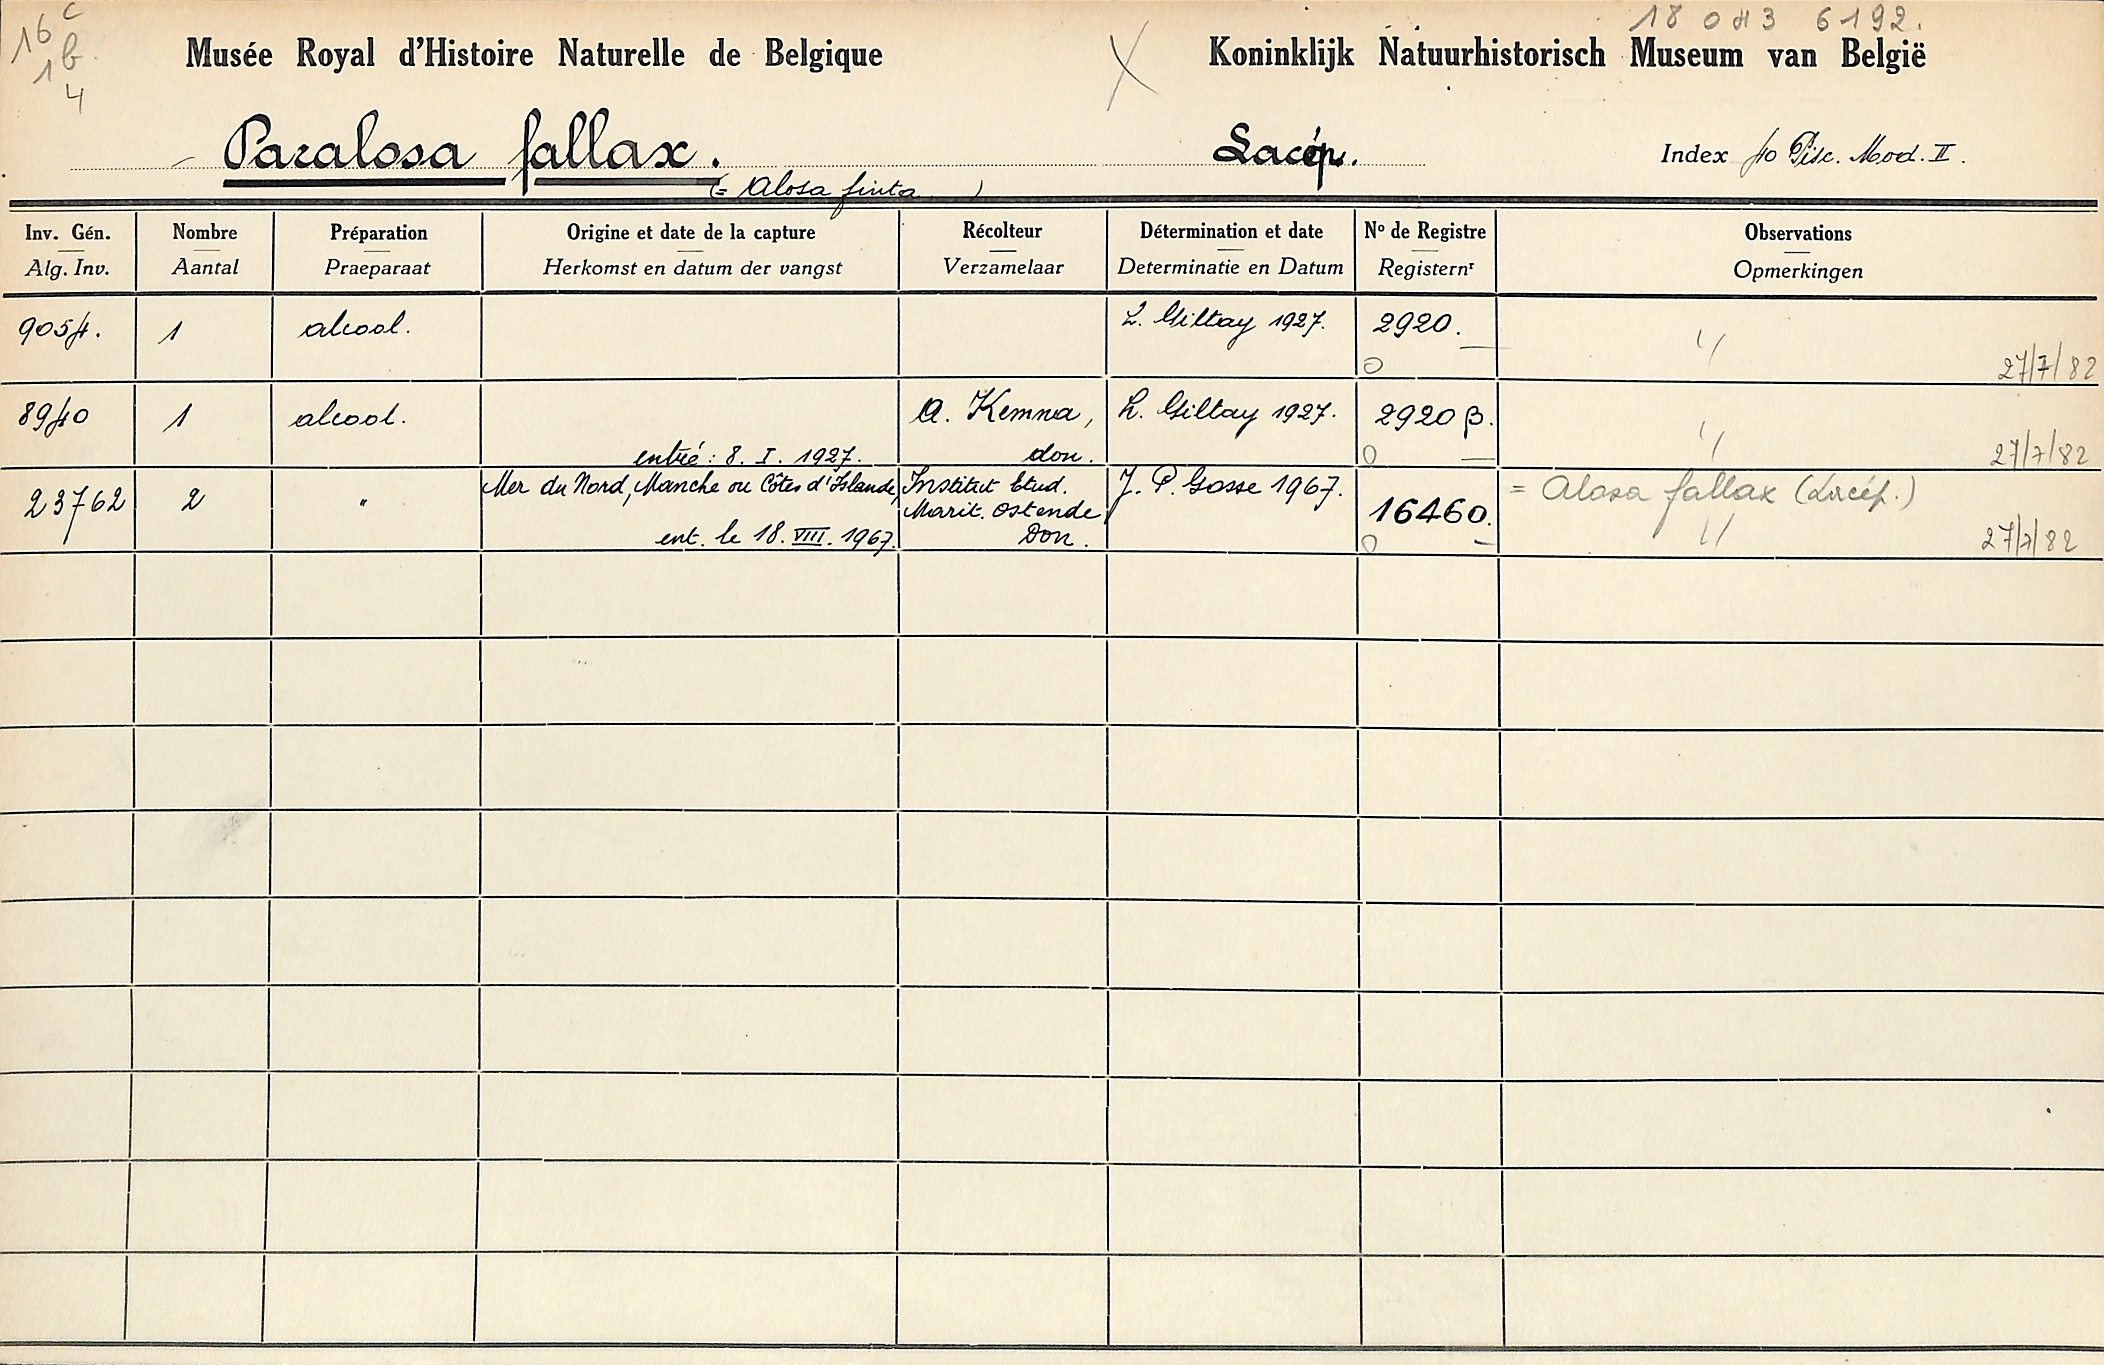 16 c
1 b.
4
18 043 6192.
Musée Royal d'Histoire Naturelle de Belgique
X
Koninklijk Natuurhistorisch Museum van België
Paralosa fallax.
Lacép.
Index 40 Pisc. Mod. II.
(= Alosa finta )
Inv. Gén. Nombre Préparation Origine et date de la capture Récolteur Détermination et date No de Registre Observations
Alg. Inv. Aantal Praeparaat Herkomst en datum der vangst Verzamelaar Determinatie en Datum Registernr Opmerkingen
9054. 1 alcool. L. Giltay 1927. 2920.
0 27/7/82
8940 1 alcool. A. Kemna, L. Giltay 1927. 2920 β.
entré: 8. I. 1927. don. 0 27/7/82
Mer du Nord, Manche ou Côtes d'Islande, Institut Etud. J. P. Gosse 1967. = Alosa fallax (Lacép.)
23762 2 " Marit. Ostende 16460.
ent. le 18. VIII. 1967. Don. 0 27/7/82